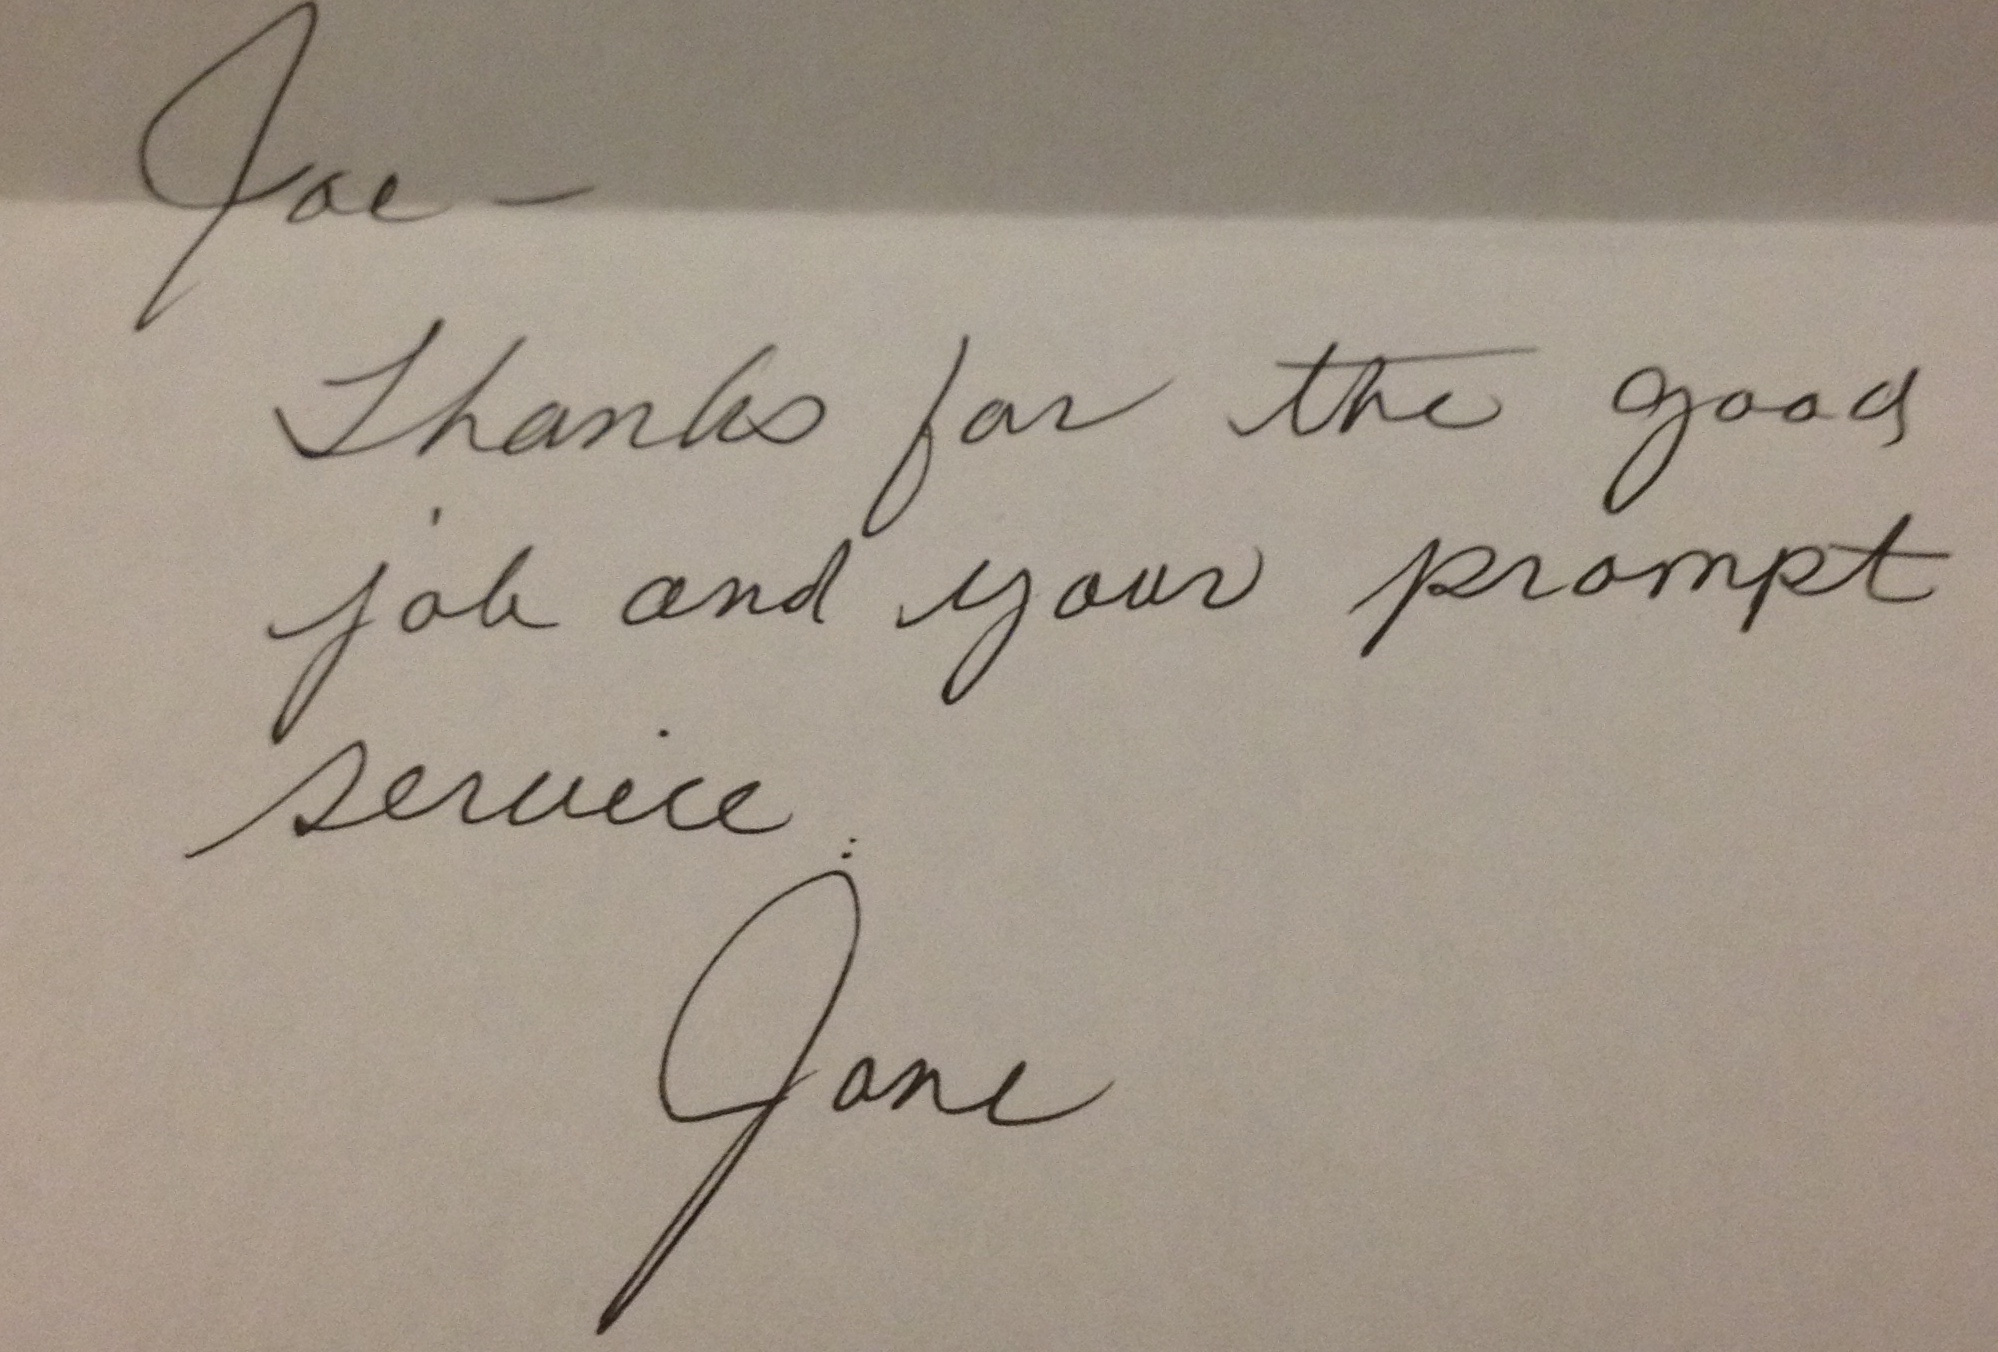 Joe —
Thanks for the good
job and your prompt
service.
Jane